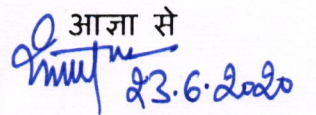 आज्ञा से
23.6.2020